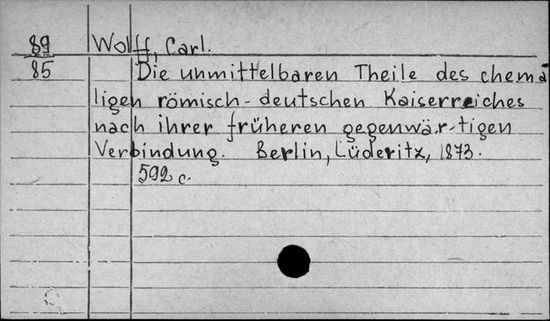 89 Wolff, Carl.
85 Die unmittelbaren Theile des chema
ligen römisch-deutschen Kaiserreiches
nach ihrer früheren gegenwär-tigen
Verbindung. Berlin, Lüderitz, 1873.
592 c.